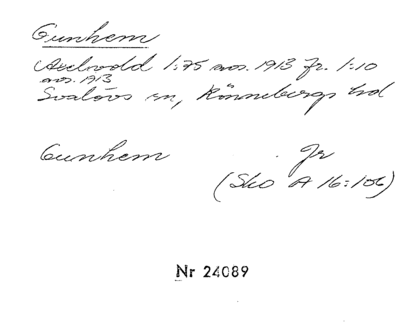 Gunhem
Axelvold 1:75 avs. 1913 fr. 1:10
avs. 1913
Svalövs sn, Rönnebergs hd
Gunhem Jr
(Sko A 16:106)
Nr 24089